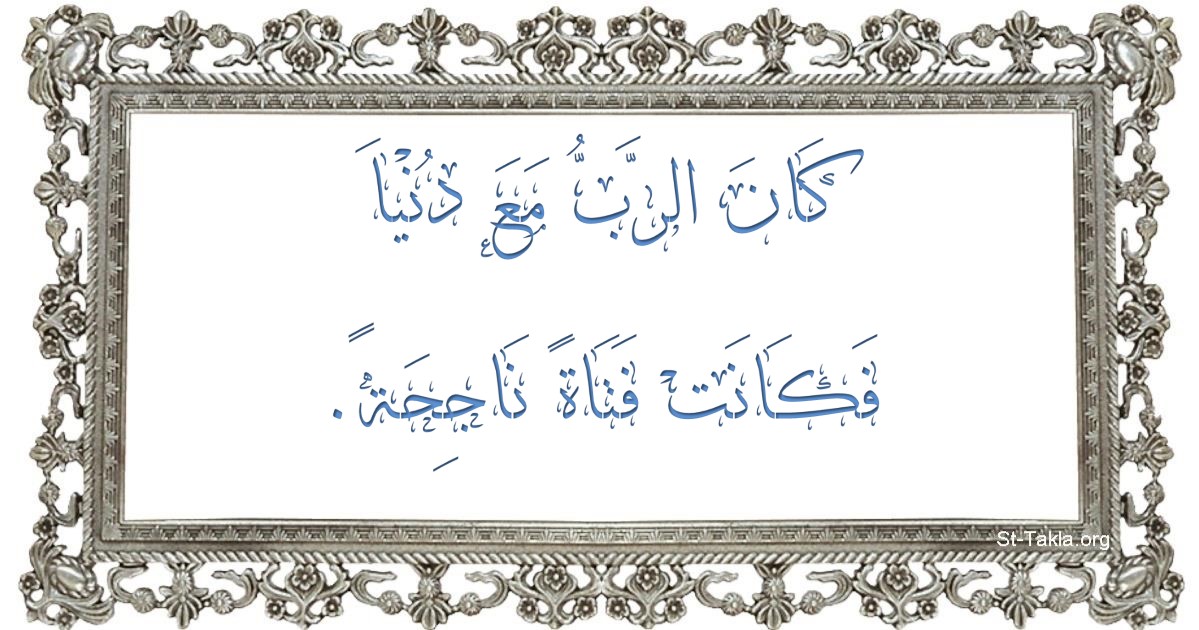 كَانَ الرَّبُّ مَعَ دُنْيَا
فَكَانَت فَتَاةً نَاجِحَةً.
St-Takla.org